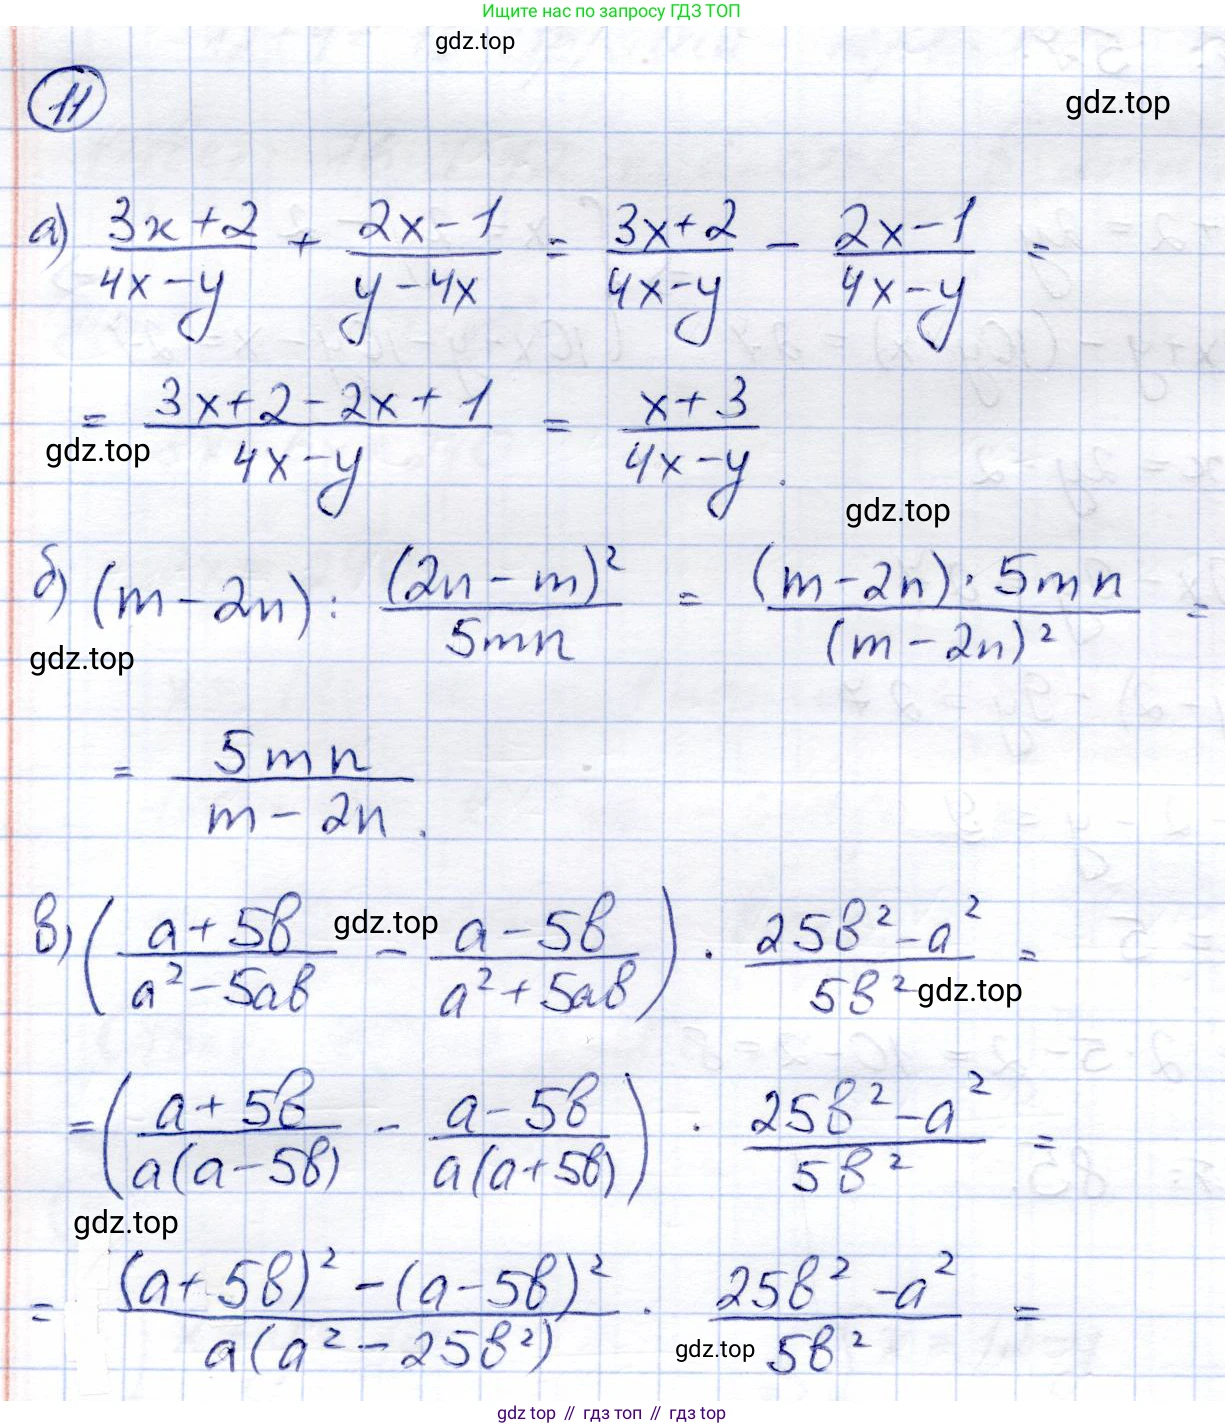 Ищите нас по запросу ГДЗ ТОП
gdz.top
11
gdz.top
а) (3x+2)/(4x-y) + (2x-1)/(y-4x) = (3x+2)/(4x-y) - (2x-1)/(4x-y) =
= (3x+2-2x+1)/(4x-y) = (x+3)/(4x-y).
gdz.top
gdz.top
б) (m-2n) : (2n-m)²/5mn = (m-2n)·5mn/(m-2n)² =
gdz.top
= 5mn/(m-2n).
в) ((a+5b)/(a²-5ab) - (a-5b)/(a²+5ab)) · (25b²-a²)/5b² =
gdz.top
gdz.top
= ((a+5b)/(a(a-5b)) - (a-5b)/(a(a+5b))) · (25b²-a²)/5b² =
gdz.top
= ((a+5b)²-(a-5b)²)/(a(a²-25b²)) · (25b²-a²)/5b² =
gdz.top
gdz top // гдз топ // гдз top